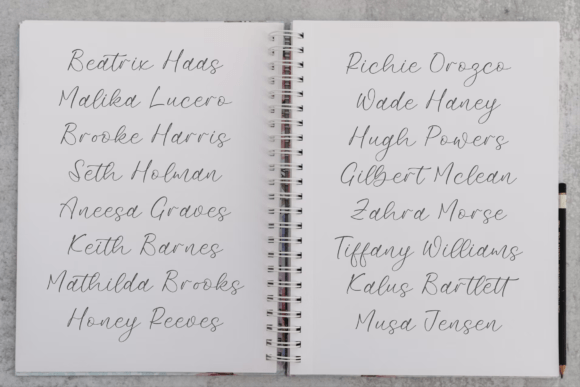 Beatrix Haas
Malika Lucero
Brooke Harris
Seth Holman
Aneesa Graves
Keith Barnes
Mathilda Brooks
Honey Reeves
Richie Orozco
Wade Haney
Hugh Powers
Gilbert Mclean
Zahra Morse
Tiffany Williams
Kalus Bartlett
Musa Jensen